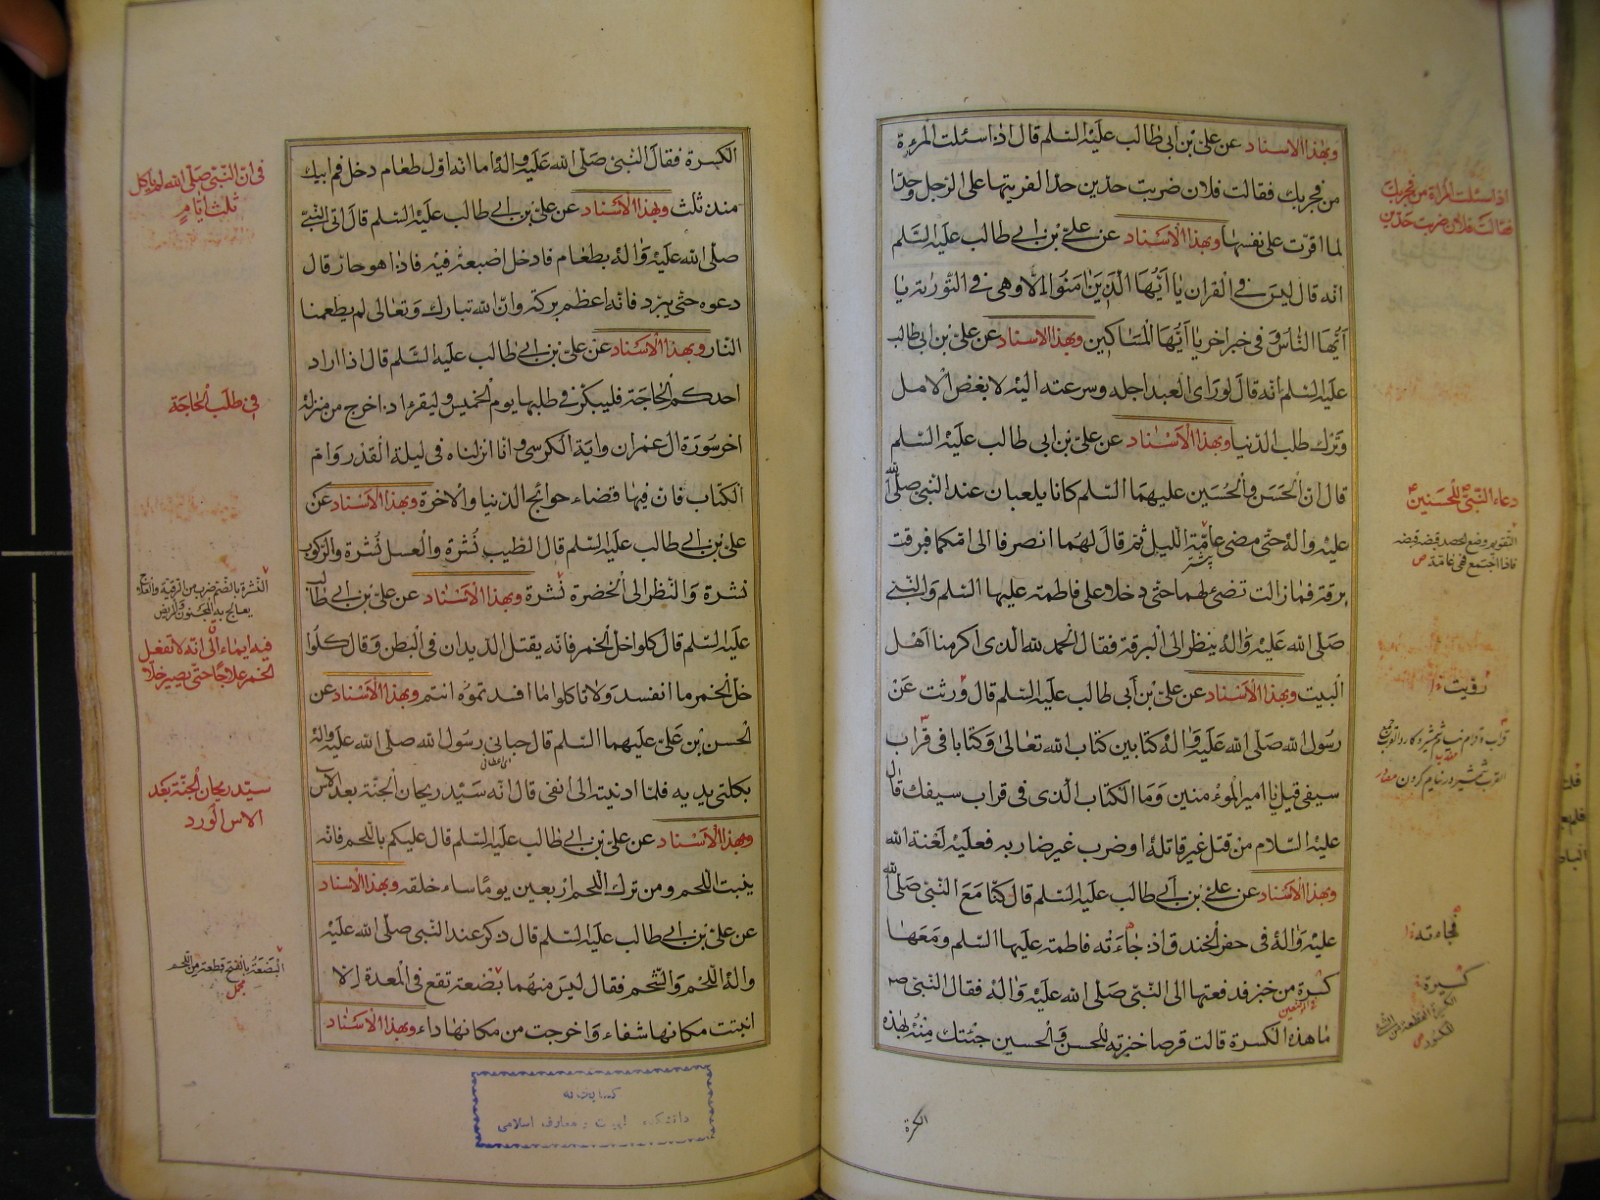 وبهذا الاسناد عن علی بن ابی طالب علیه السلم قال اذا سئلت المرءة
من فجر بك فقالت فلان ضربت حدین حدا لفریتها علی الرجل وحدا
لما اقرت علی نفسها وبهذا الاسناد عن علی بن ابی طالب علیه السلم
انه قال لیس فی القران یا ایها الذین امنوا الا وهی فی التوریة یا
ایها الناس وفی خبر اخر یا ایها المساکین وبهذا الاسناد عن علی بن ابی طالب
علیه السلم انه قال لو رای العبد اجله وسرعته الیه لابغض الامل
وترك طلب الدنیا وبهذا الاسناد عن علی بن ابی طالب علیه السلم
قال ان الحسن والحسین علیهما السلم کانا یلعبان عند النبی صلی الله
علیه واله حتی مضی عامة اللیل ثم قال لهما انصرفا الی امکما فبرقت
برقة فما زالت تضیء لهما حتی دخلا علی فاطمة علیها السلم والنبی
صلی الله علیه واله ینظر الی البرقة فقال الحمد لله الذی اکرمنا اهل
البیت وبهذا الاسناد عن علی بن ابی طالب علیه السلم قال ورثت عن
رسول الله صلی الله علیه واله کتابین کتاب الله تعالی وکتابا فی قراب
سیفی قیل یا امیر المؤمنین وما الکتاب الذی فی قراب سیفك قال
علیه السلام من قتل غیر قاتله او ضرب غیر ضاربه فعلیه لعنة الله
وبهذا الاسناد عن علی بن ابی طالب علیه السلم قال کنا مع النبی صلی الله
علیه واله فی حفر الخندق اذ جاءته فاطمة علیها السلم ومعها
کسرة من خبز فدفعتها الی النبی صلی الله علیه واله فقال النبی ص
ما هذه الکسرة قالت قرصا خبزته للحسن والحسین جئتك منه بهذه
الکسرة
اذا سئلت المراة من فجر بك
فقالت فلان ضربت حدین
دعاء النبی للحسنین
رؤیت
فجاءته
کسیرة
الکسرة فقال النبی صلی الله علیه واله اما انه اول طعام دخل فم ابیك
منذ ثلث وبهذا الاسناد عن علی بن ابی طالب علیه السلم قال اتی النبی
صلی الله علیه واله بطعام فادخل اصبعه فیه فاذا هو حار قال
دعوه حتی یبرد فانه اعظم برکة وان الله تبارك وتعالی لم یطعمنا
النار وبهذا الاسناد عن علی بن ابی طالب علیه السلم قال اذا اراد
احدکم الحاجة فلیبکر فی طلبها یوم الخمیس ولیقرء اذا خرج من منزله
اخر سورة ال عمران وایة الکرسی وانا انزلناه فی لیلة القدر وام
الکتاب فان فیها قضاء حوائج الدنیا والاخرة وبهذا الاسناد عن
علی بن ابی طالب علیه السلم قال الطیب نشرة والعسل نشرة والرکوب
نشرة والنظر الی الخضرة نشرة وبهذا الاسناد عن علی بن ابی طالب
علیه السلم قال کلوا خل الخمر فانه یقتل الدیدان فی البطن وقال کلوا
خل الخمر ما انفسد ولا تاکلوا ما افسدتموه انتم وبهذا الاسناد عن
الحسن بن علی علیهما السلم قال حبانی رسول الله صلی الله علیه واله
بکلتی یدیه فلما ادنیته الی انفی قال انه سید ریحان الجنة بعد الاس
وبهذا الاسناد عن علی بن ابی طالب علیه السلم قال علیکم باللحم فانه
ینبت اللحم ومن ترك اللحم اربعین یوما ساء خلقه وبهذا الاسناد
عن علی بن ابی طالب علیه السلم قال ذکر عند النبی صلی الله علیه
واله اللحم والشحم فقال لیس منهما بضعة تقع فی المعدة الا
انبتت مکانها شفاء واخرجت من مکانها داء وبهذا الاسناد
فی ان النبی صلی الله لم یاکل
ثلث ایام
فی طلب الحاجة
النشرة بالضم ضرب من الرقیة والعلاج
یعالج به المجنون والمریض
فیه ایماء الی انه لا تفعل
الخمر علاجا حتی یصیر خلا
سید ریحان الجنة بعد
الاس الورد
البضعة بالفتح قطعة من اللحم
مجمل
کتابخانه
دانشکده الهیات و معارف اسلامی